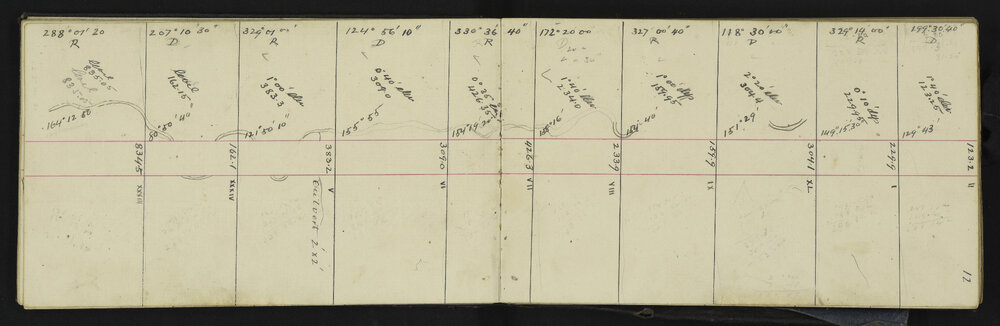 288° 01' 20
R
Level
835.05
164° 12' 50
834.5
XXXIII
207° 10' 30"
D
level
162.15
50° 50' 40"
162.1
XXXIV
329° 01' 00'
R
1° 00' elev
383.3
121° 50' 10"
383.2
V
Culvert 2'x2'
124° 56' 10"
D
0° 40' elev
309.0
155° 55'
309.0
VI
330° 36' 40"
R
0° 35'
426.35
154° 19' 20"
426.3
VII
172° 20' 00
D
1° 40' elev
234.0
158° 16'
233.9
VIII
327° 00' 40"
R
1° 00' dep
159.95
154° 40'
159.9
IX
118° 30' 00"
2° 20' elev
304.4
151° 29'
304.1
XL
329° 14' 00"
R
0° 10' dep
229.95
149° 15' 30"
229.9
I
199° 30' 40
D
1° 40' elev
123.25
129° 43'
123.2
II
12